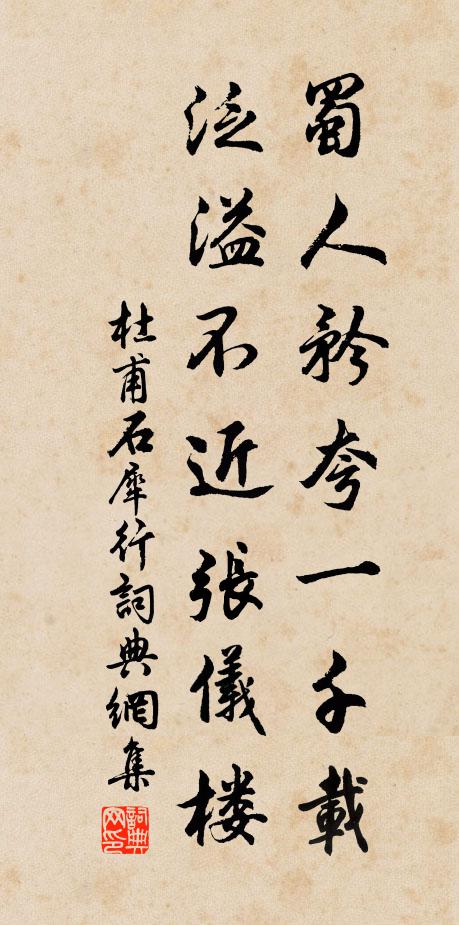 蜀人矜夸一千載
泛溢不近張儀楼
杜甫石犀行詞典網集
詞典網印